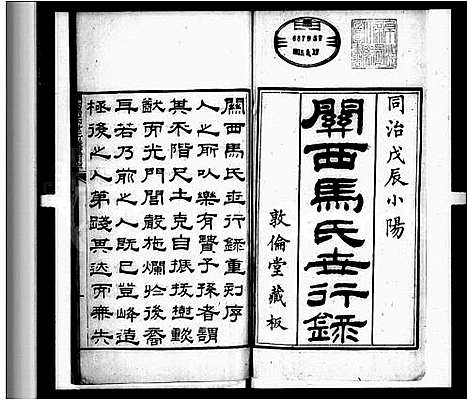 同治戊辰小陽
關西馬氏世行錄
敦倫堂藏板
關西馬氏世行錄重刻序
人之所以樂有賢子孫者謂
其不階尺土克自振拔樹懿
猷而光門閭嚴施爛於後裔
耳若乃前之人既已豈峰造
極後之人第踐其迹而無失